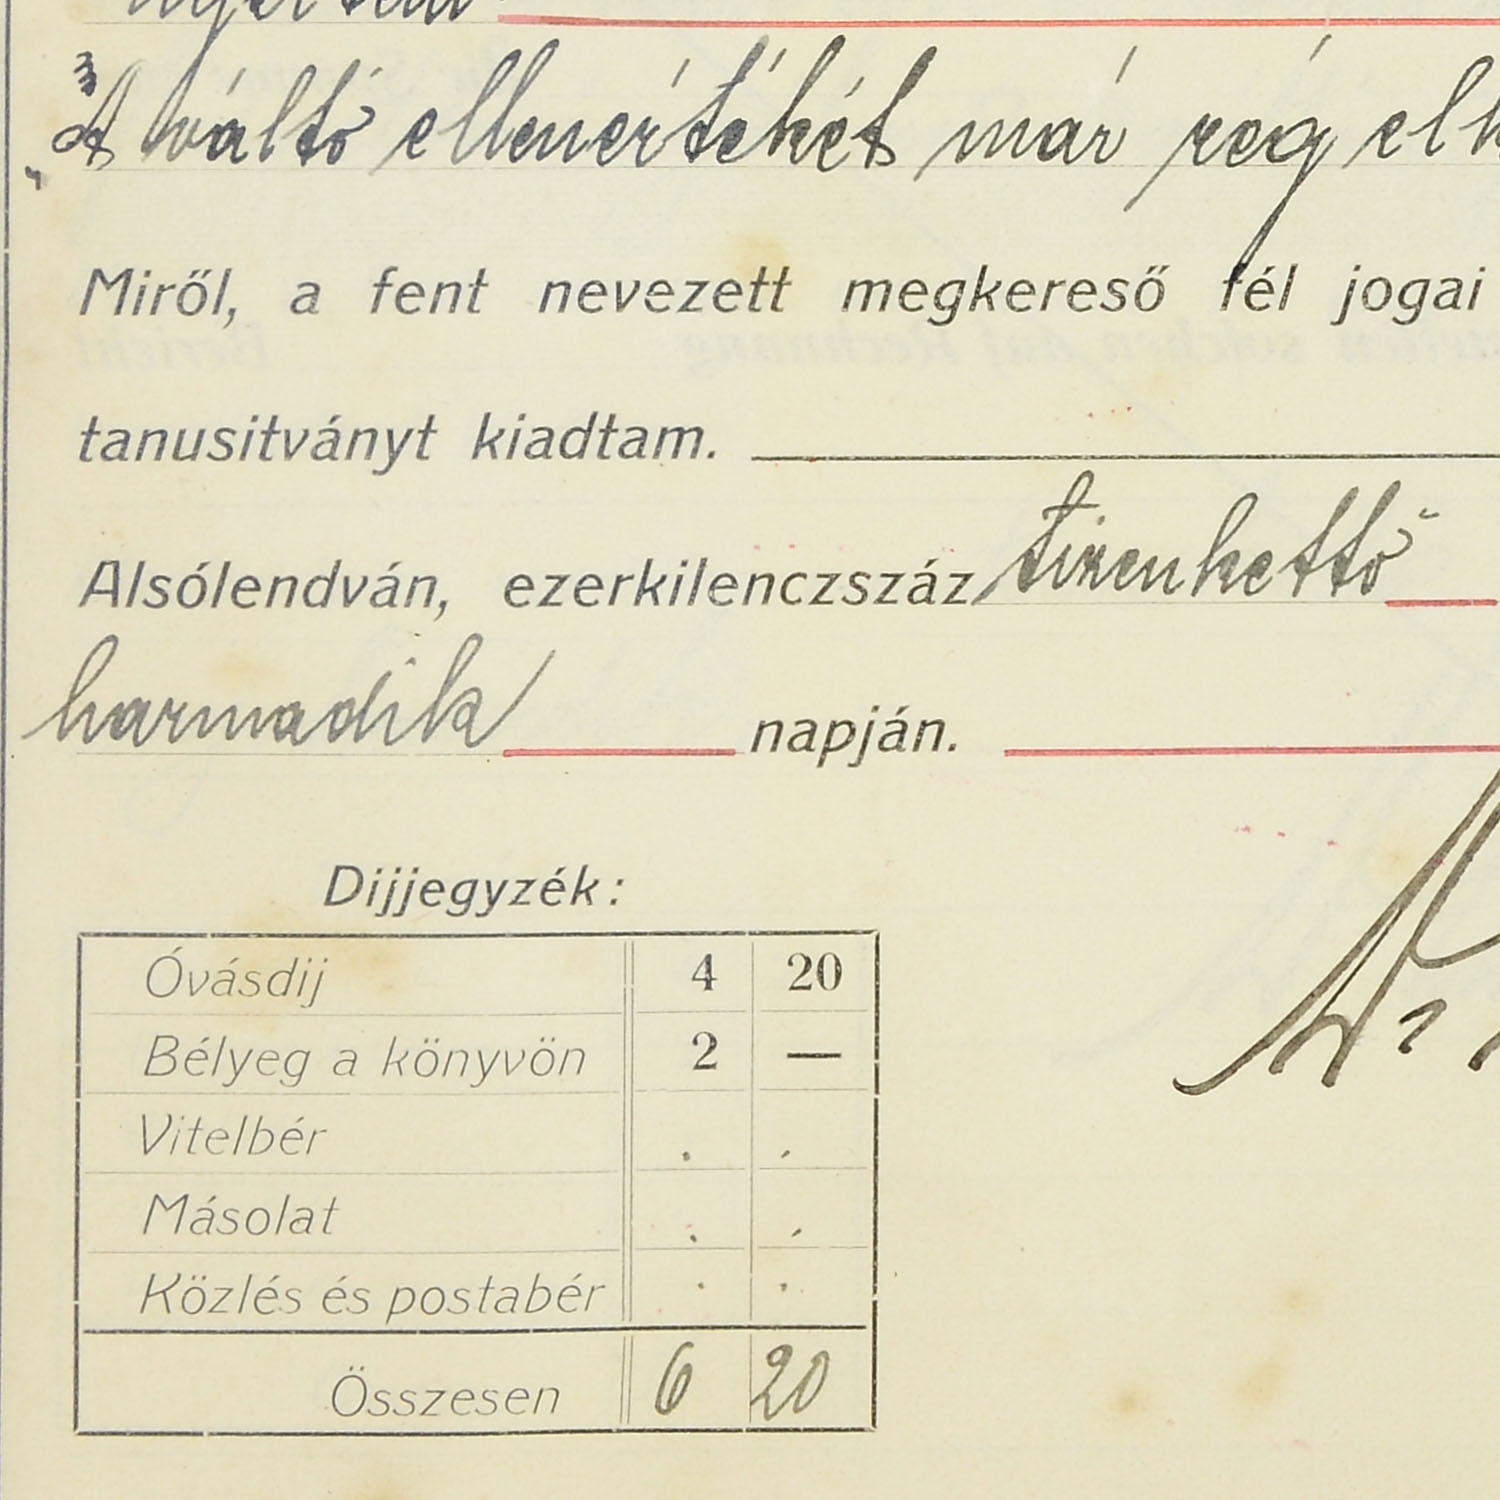 nyertem
"A váltó ellenértékét már rég elk
Miről, a fent nevezett megkereső fél jogai
tanusitványt kiadtam.
Alsólendván, ezerkilenczszáz tizenkettő
harmadik napján.
Dijjegyzék:
Óvásdij 4 20
Bélyeg a könyvön 2 —
Vitelbér . .
Másolat . .
Közlés és postabér . .
Összesen 6 20